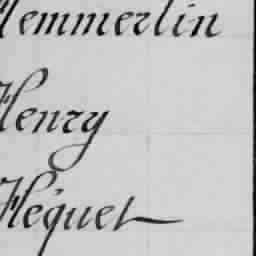 Hemmerlin
Henry
Héquet